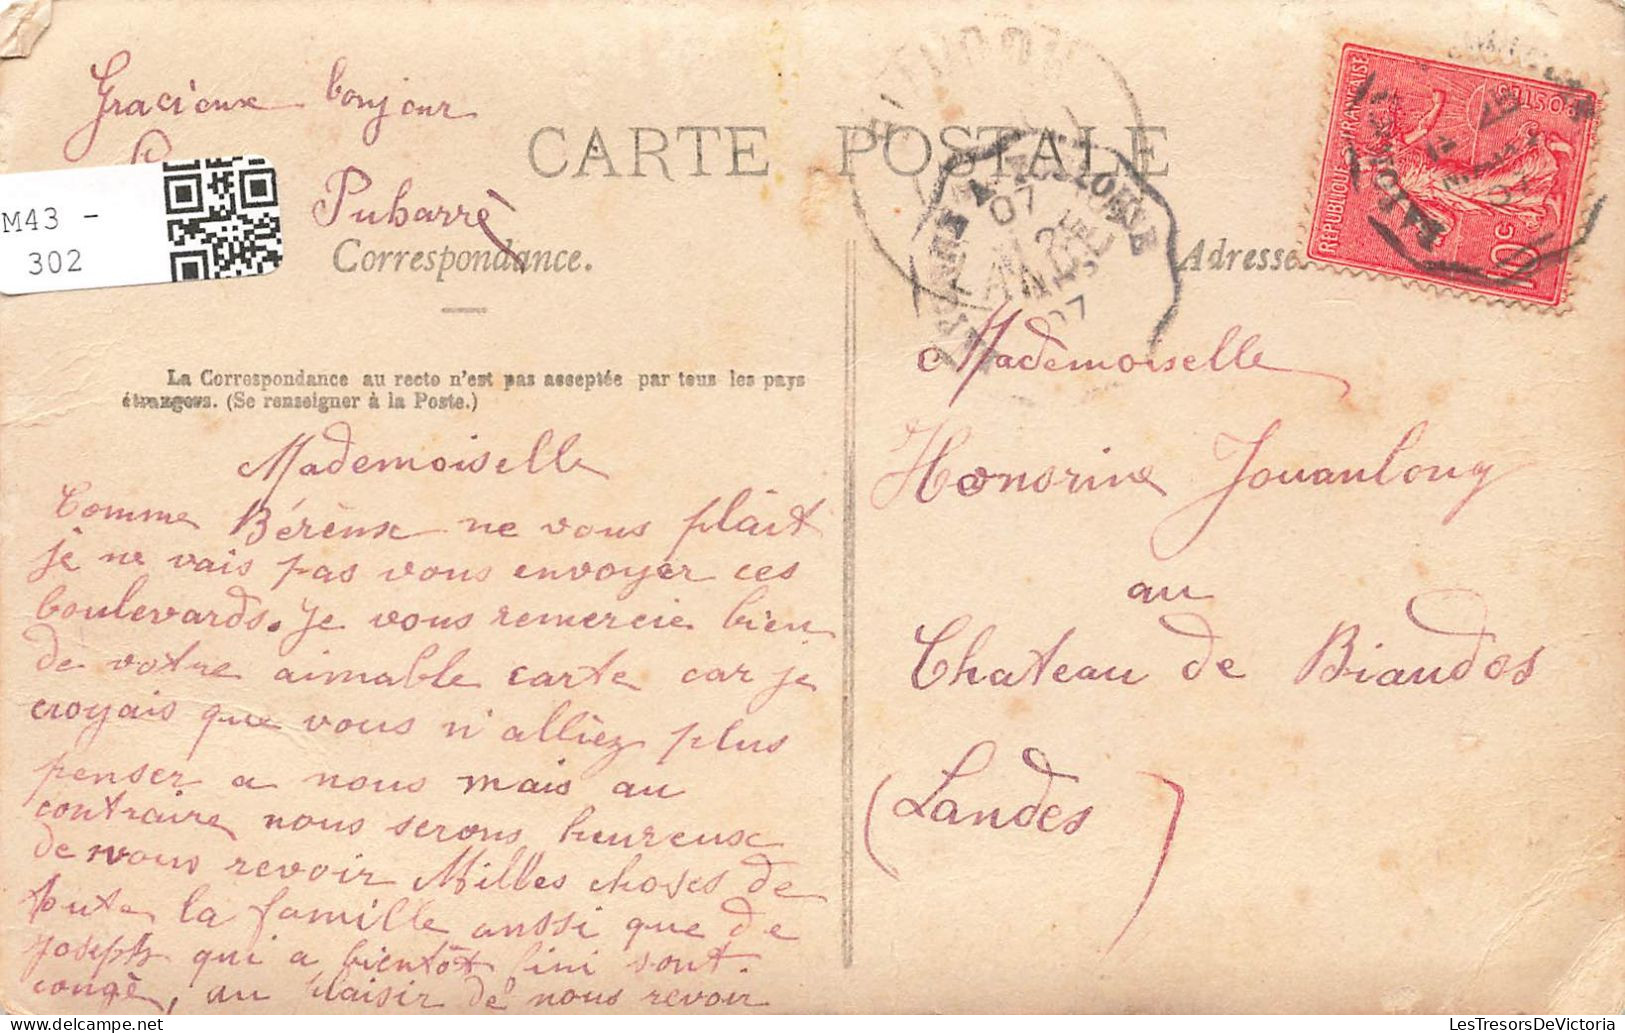 Gracieux bonjour
Puharré
M43 -
302
CARTE POSTALE
Correspondance.
La Correspondance au recto n'est pas acceptée par tous les pays
étrangers. (Se renseigner à la Poste.)
Mademoiselle
Comme ne vous plait
je ne vais pas vous envoyer ces
boulevards. Je vous remercie bien
de votre aimable carte car je
croyais que vous n'alliez plus
penser a nous mais au
contraire nous serons heureux
de vous revoir Milles choses de
toute la famille aussi que de
Joseph qui a bientôt fini sont
congé, au plaisir de nous revoir
Adresse
REPUBLIQUE FRANÇAISE
POSTES
10c
A BAYONNE
07
LANDES
07
Mademoiselle
Honorine Jouanlong
au
Chateau de Biaudos
(Landes)
LesTresorsDeVictoria